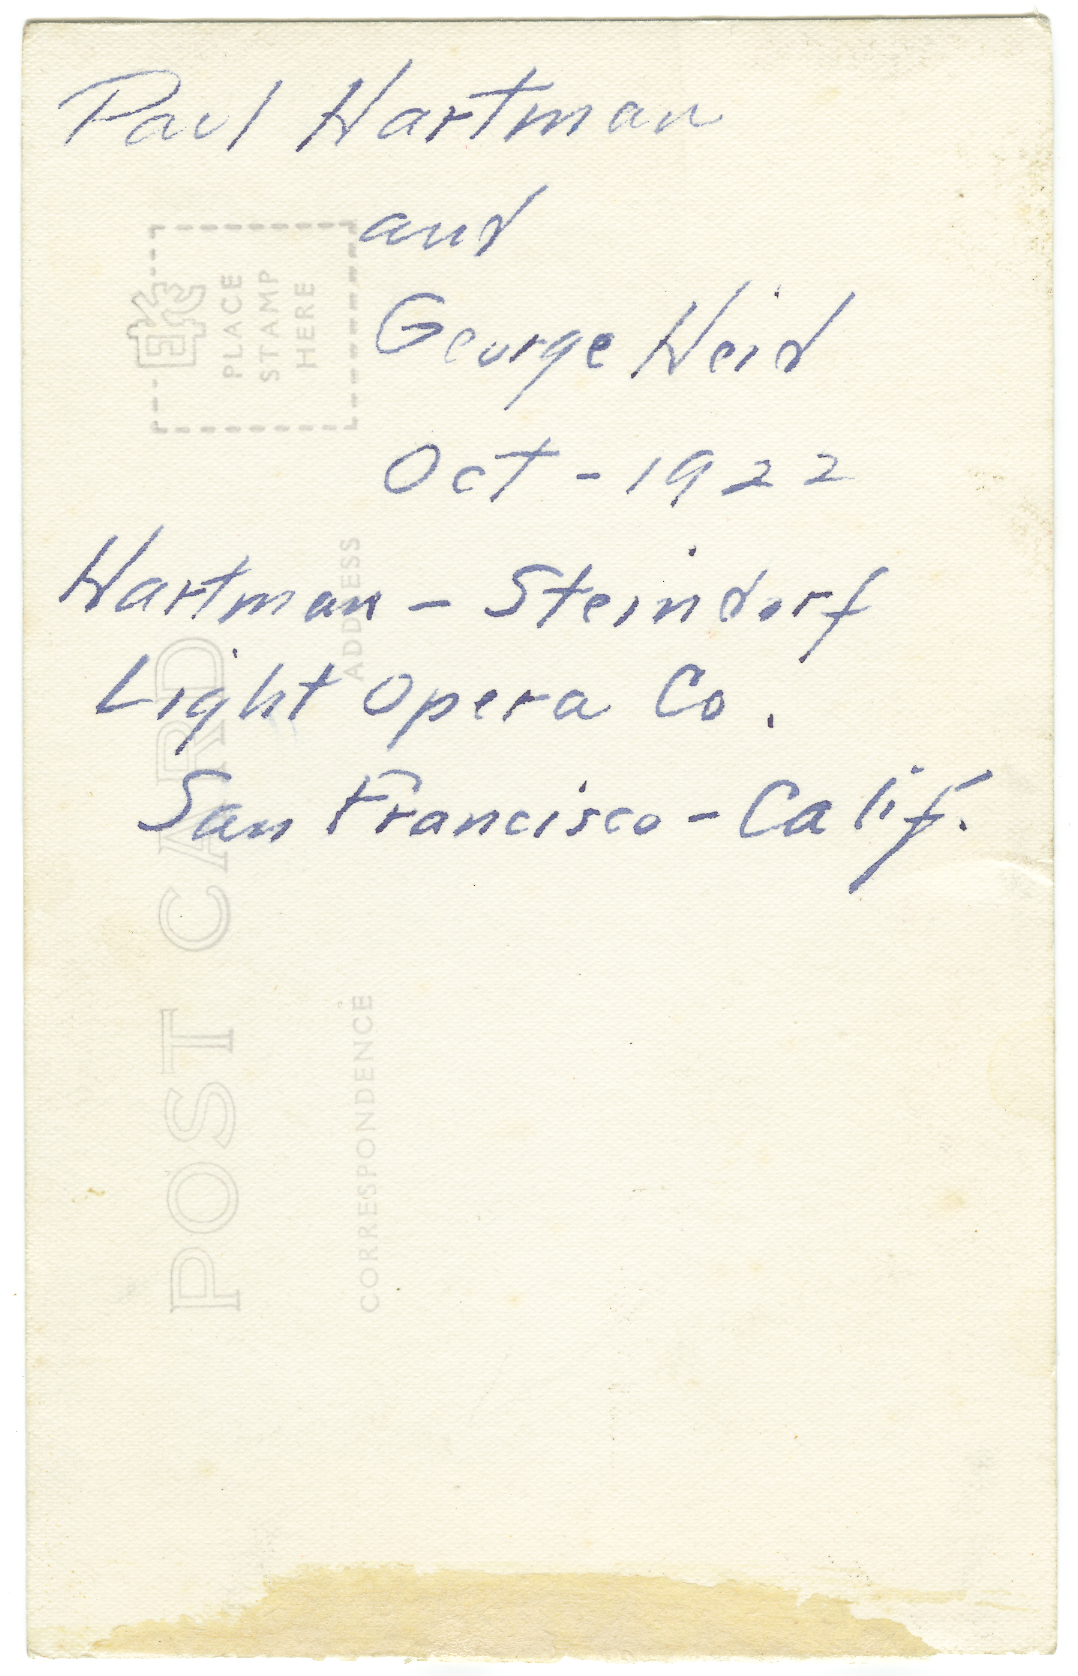 Paul Hartman
and
George Heid
Oct - 1922
Hartman - Steindorf
Light Opera Co.
San Francisco - Calif.
PLACE
STAMP
HERE
ADDRESS
POST CARD
CORRESPONDENCE